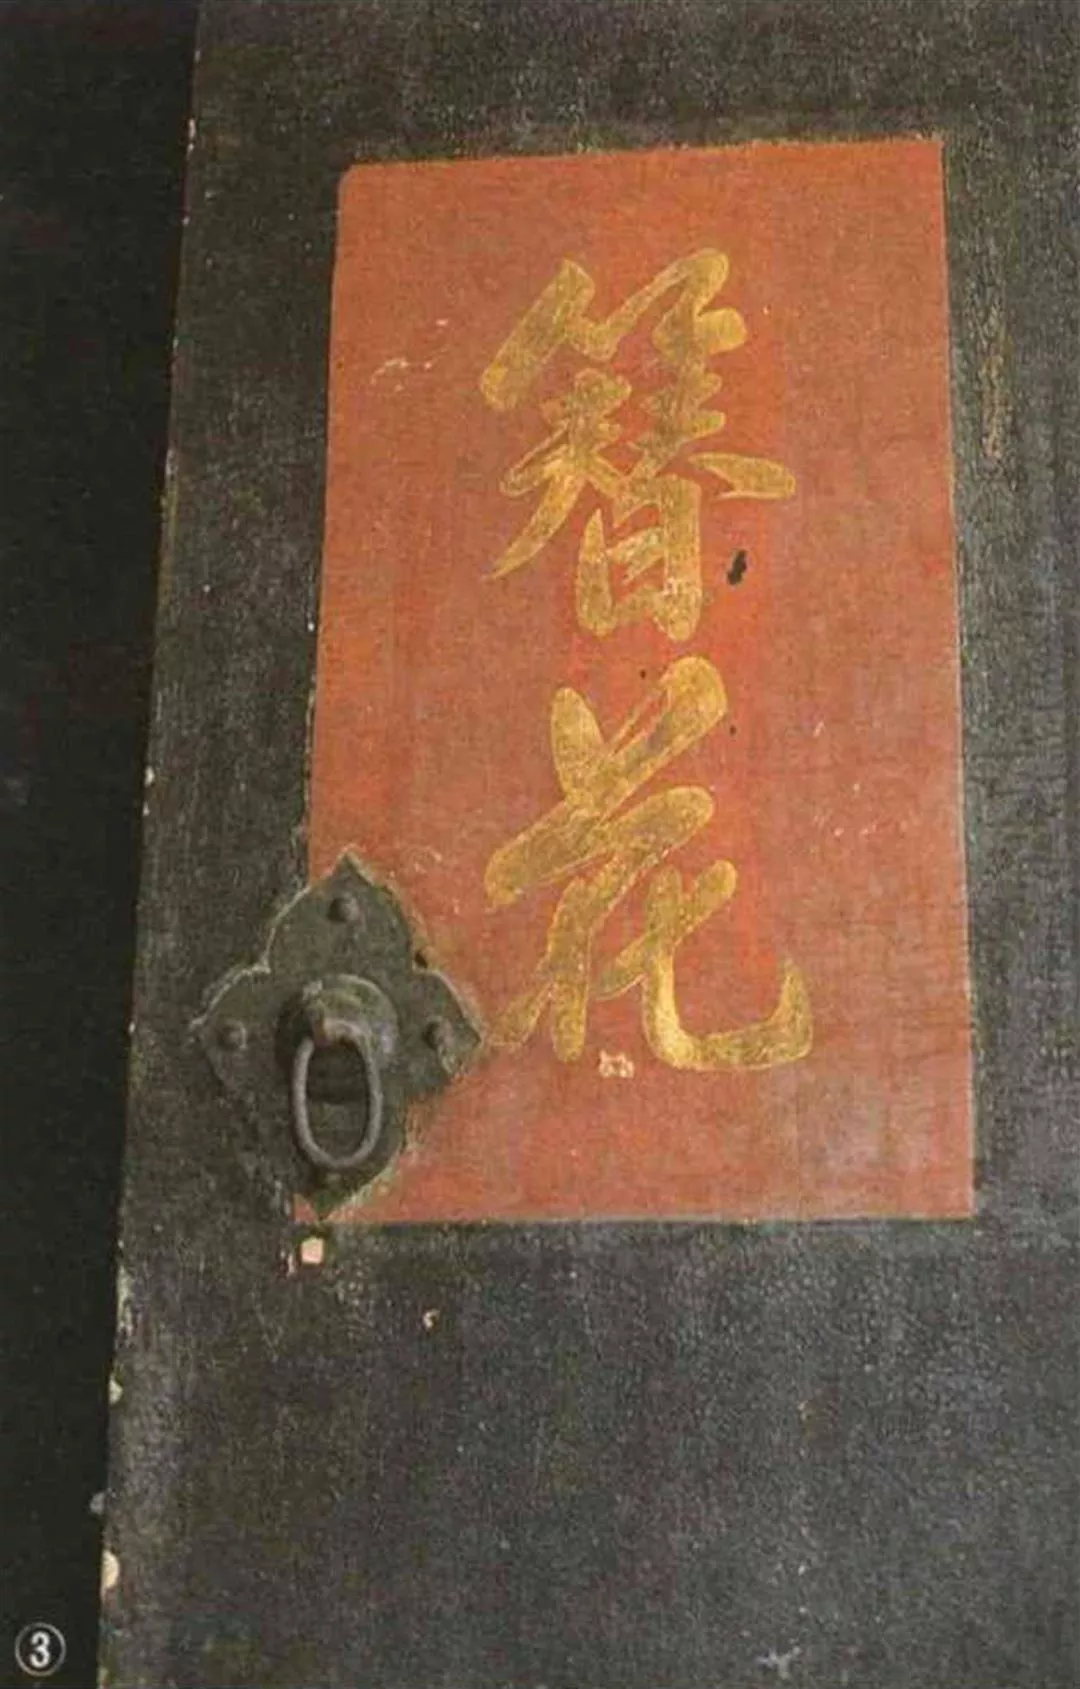 簪花
③